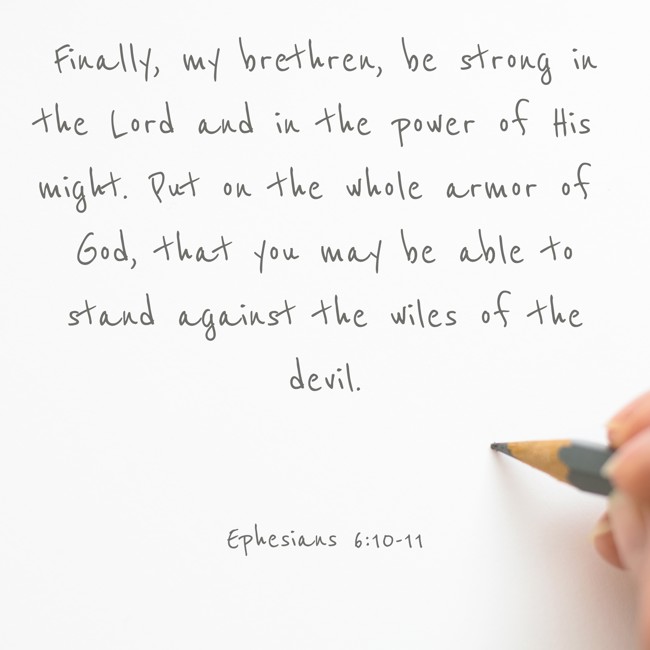 Finally, my brethren, be strong in
the Lord and in the power of His
might. Put on the whole armor of
God, that you may be able to
stand against the wiles of the
devil.
Ephesians 6:10-11